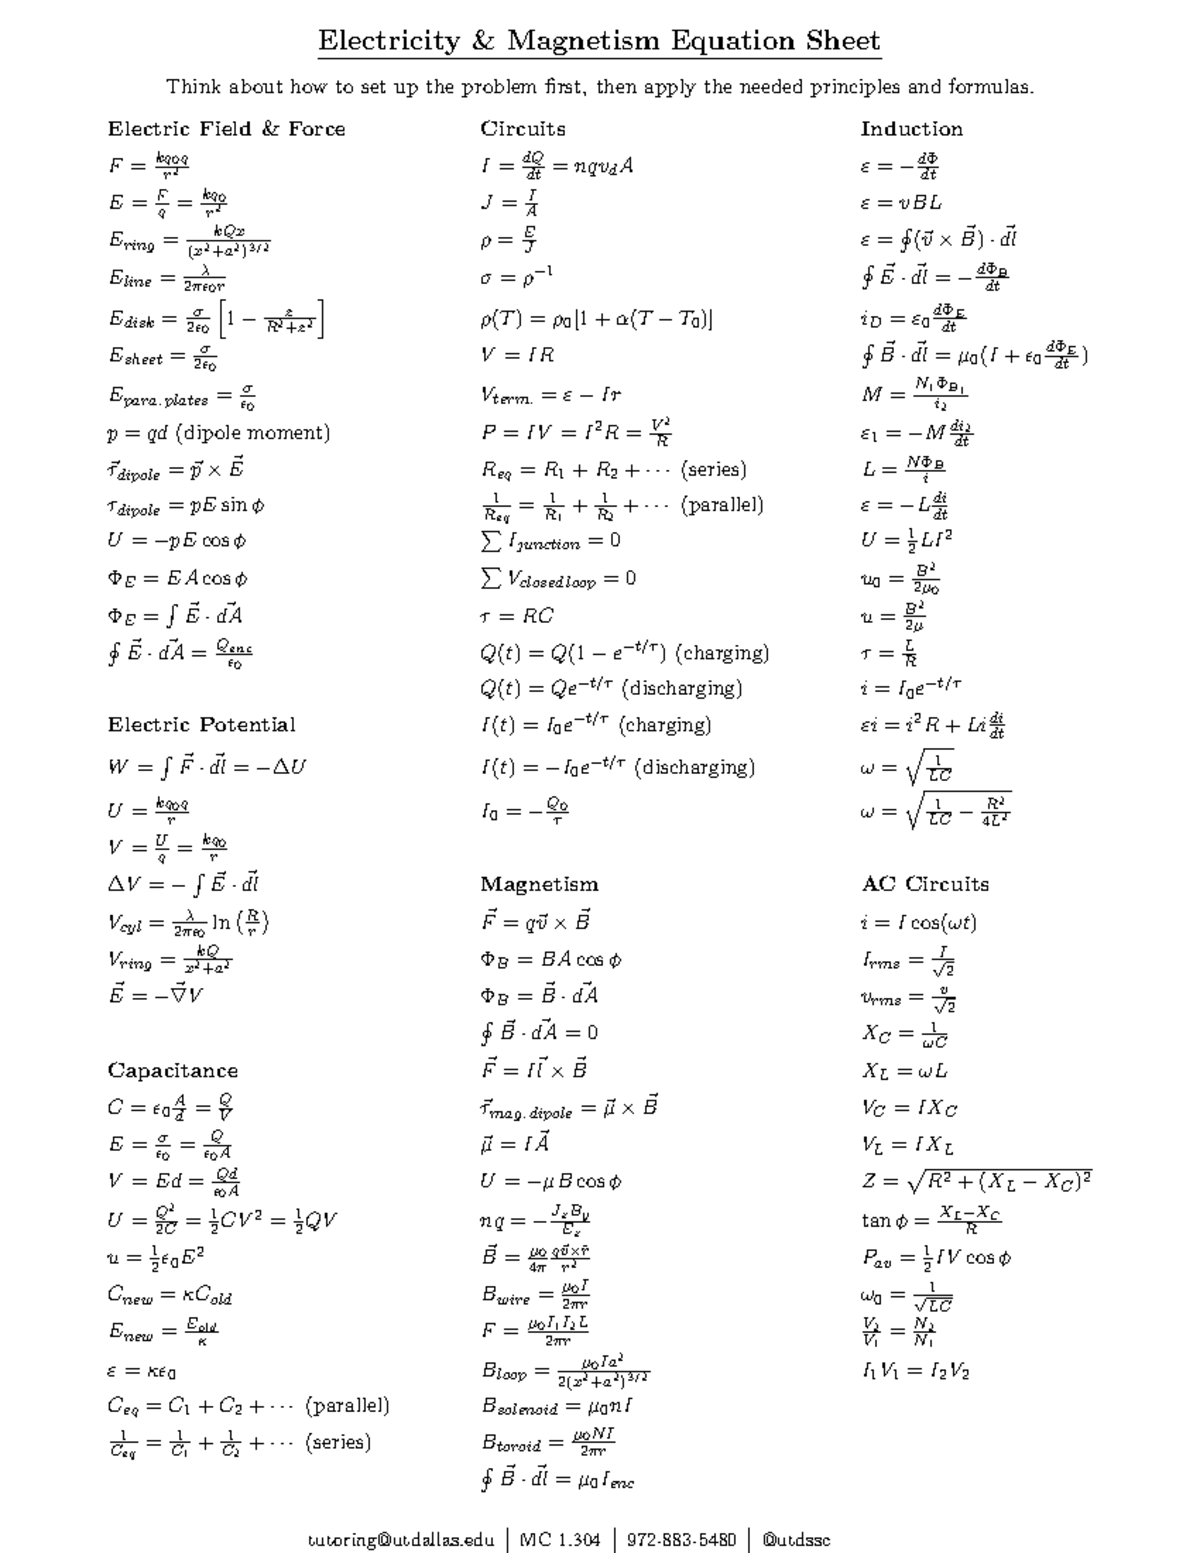 Electricity & Magnetism Equation Sheet
Think about how to set up the problem first, then apply the needed principles and formulas.
Electric Field & Force
F = \frac{kq_0q}{r^2}
E = \frac{F}{q} = \frac{kq_0}{r^2}
E_{ring} = \frac{kQx}{(x^2+a^2)^{3/2}}
E_{line} = \frac{λ}{2πϵ_0r}
E_{disk} = \frac{σ}{2ϵ_0} [1 − \frac{z}{R^2+z^2}]
E_{sheet} = \frac{σ}{2ϵ_0}
E_{para.plates} = \frac{σ}{ϵ_0}
p = qd (dipole moment)
\vec{τ}_{dipole} = \vec{p} × \vec{E}
τ_{dipole} = pE sin ϕ
U = −pE cos ϕ
Φ_E = EA cos ϕ
Φ_E = ∫ \vec{E} · \vec{dA}
∮ \vec{E} · \vec{dA} = \frac{Q_{enc}}{ϵ_0}
Electric Potential
W = ∫ \vec{F} · \vec{dl} = −ΔU
U = \frac{kq_0q}{r}
V = \frac{U}{q} = \frac{kq_0}{r}
ΔV = − ∫ \vec{E} · \vec{dl}
V_{cyl} = \frac{λ}{2πϵ_0} ln (\frac{R}{r})
V_{ring} = \frac{kQ}{x^2+a^2}
\vec{E} = −\vec{∇}V
Capacitance
C = ϵ_0\frac{A}{d} = \frac{Q}{V}
E = \frac{σ}{ϵ_0} = \frac{Q}{ϵ_0A}
V = Ed = \frac{Qd}{ϵ_0A}
U = \frac{Q^2}{2C} = \frac{1}{2}CV^2 = \frac{1}{2}QV
u = \frac{1}{2}ϵ_0E^2
C_{new} = κC_{old}
E_{new} = \frac{E_{old}}{κ}
ε = κϵ_0
C_{eq} = C_1 + C_2 + ··· (parallel)
\frac{1}{C_{eq}} = \frac{1}{C_1} + \frac{1}{C_2} + ··· (series)
Circuits
I = \frac{dQ}{dt} = nqv_dA
J = \frac{I}{A}
ρ = \frac{E}{J}
σ = ρ^{−1}
ρ(T) = ρ_0[1 + α(T − T_0)]
V = IR
V_{term.} = ε − Ir
P = IV = I^2R = \frac{V^2}{R}
R_{eq} = R_1 + R_2 + ··· (series)
\frac{1}{R_{eq}} = \frac{1}{R_1} + \frac{1}{R_2} + ··· (parallel)
∑ I_{junction} = 0
∑ V_{closedloop} = 0
τ = RC
Q(t) = Q(1 − e^{−t/τ}) (charging)
Q(t) = Qe^{−t/τ} (discharging)
I(t) = I_0e^{−t/τ} (charging)
I(t) = −I_0e^{−t/τ} (discharging)
I_0 = −\frac{Q_0}{τ}
Magnetism
\vec{F} = q\vec{v} × \vec{B}
Φ_B = BA cos ϕ
Φ_B = \vec{B} · \vec{dA}
∮ \vec{B} · \vec{dA} = 0
\vec{F} = I\vec{l} × \vec{B}
\vec{τ}_{mag.dipole} = \vec{μ} × \vec{B}
\vec{μ} = I\vec{A}
U = −μB cos ϕ
nq = −\frac{J_xB_y}{E_z}
\vec{B} = \frac{μ_0}{4π} \frac{q\vec{v}×\hat{r}}{r^2}
B_{wire} = \frac{μ_0I}{2πr}
F = \frac{μ_0I_1I_2L}{2πr}
B_{loop} = \frac{μ_0Ia^2}{2(x^2+a^2)^{3/2}}
B_{solenoid} = μ_0nI
B_{toroid} = \frac{μ_0NI}{2πr}
∮ \vec{B} · \vec{dl} = μ_0I_{enc}
Induction
ε = −\frac{dΦ}{dt}
ε = vBL
ε = ∮(\vec{v} × \vec{B}) · \vec{dl}
∮ \vec{E} · \vec{dl} = −\frac{dΦ_B}{dt}
i_D = ε_0\frac{dΦ_E}{dt}
∮ \vec{B} · \vec{dl} = μ_0(I + ϵ_0\frac{dΦ_E}{dt})
M = \frac{N_1Φ_{B_1}}{i_2}
ε_1 = −M\frac{di_2}{dt}
L = \frac{NΦ_B}{i}
ε = −L\frac{di}{dt}
U = \frac{1}{2}LI^2
u_0 = \frac{B^2}{2μ_0}
u = \frac{B^2}{2μ}
τ = \frac{L}{R}
i = I_0e^{−t/τ}
εi = i^2R + Li\frac{di}{dt}
ω = \sqrt{\frac{1}{LC}}
ω = \sqrt{\frac{1}{LC} − \frac{R^2}{4L^2}}
AC Circuits
i = I cos(ωt)
I_{rms} = \frac{I}{\sqrt{2}}
v_{rms} = \frac{v}{\sqrt{2}}
X_C = \frac{1}{ωC}
X_L = ωL
V_C = IX_C
V_L = IX_L
Z = \sqrt{R^2 + (X_L − X_C)^2}
tan ϕ = \frac{X_L−X_C}{R}
P_{av} = \frac{1}{2}IV cos ϕ
ω_0 = \frac{1}{\sqrt{LC}}
\frac{V_2}{V_1} = \frac{N_2}{N_1}
I_1V_1 = I_2V_2
tutoring@utdallas.edu | MC 1.304 | 972-883-5480 | @utdssc